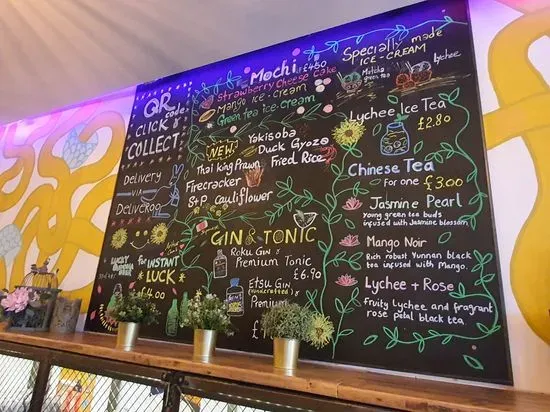 QR
code
CLICK &
COLLECT
Delivery
VIA
Deliveroo
LUCKY
for
INSTANT
LUCK
£4.00
Mochi £4.50
Strawberry Cheese Cake
Mango ice-cream
Green tea Ice-cream
NEW!
Yakisoba
Duck Gyoza
Thai king Prawn
Fried Rice
Firecracker
S+P Cauliflower
GIN & TONIC
Roku Gin &
Premium Tonic
£6.90
Etsu Gin
(handcrafted)
Premium
Specially made
ICE-CREAM
Matcha
green tea
Lychee
Lychee Ice Tea
£2.80
Chinese Tea
for one £3.00
Jasmine Pearl
Young green tea buds
infused with Jasmine blossom
Mango Noir
Rich robust Yunnan black
tea infused with Mango.
Lychee + Rose
Fruity Lychee and fragrant
rose petal black tea